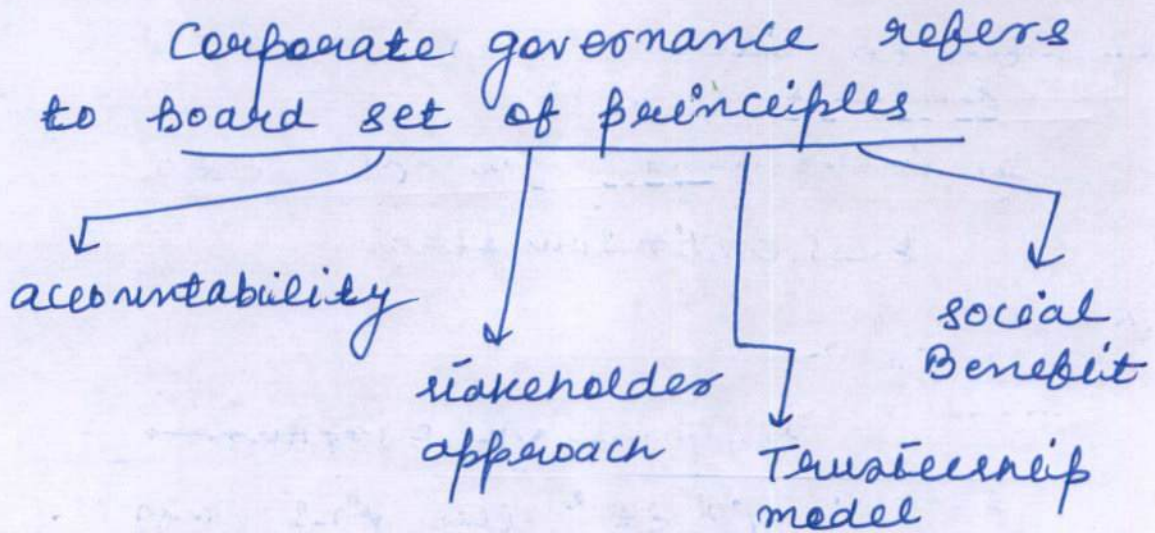 Corporate governance refers
to board set of principles
accountability
stakeholder
approach
Trusteeship
model
social
Benefit